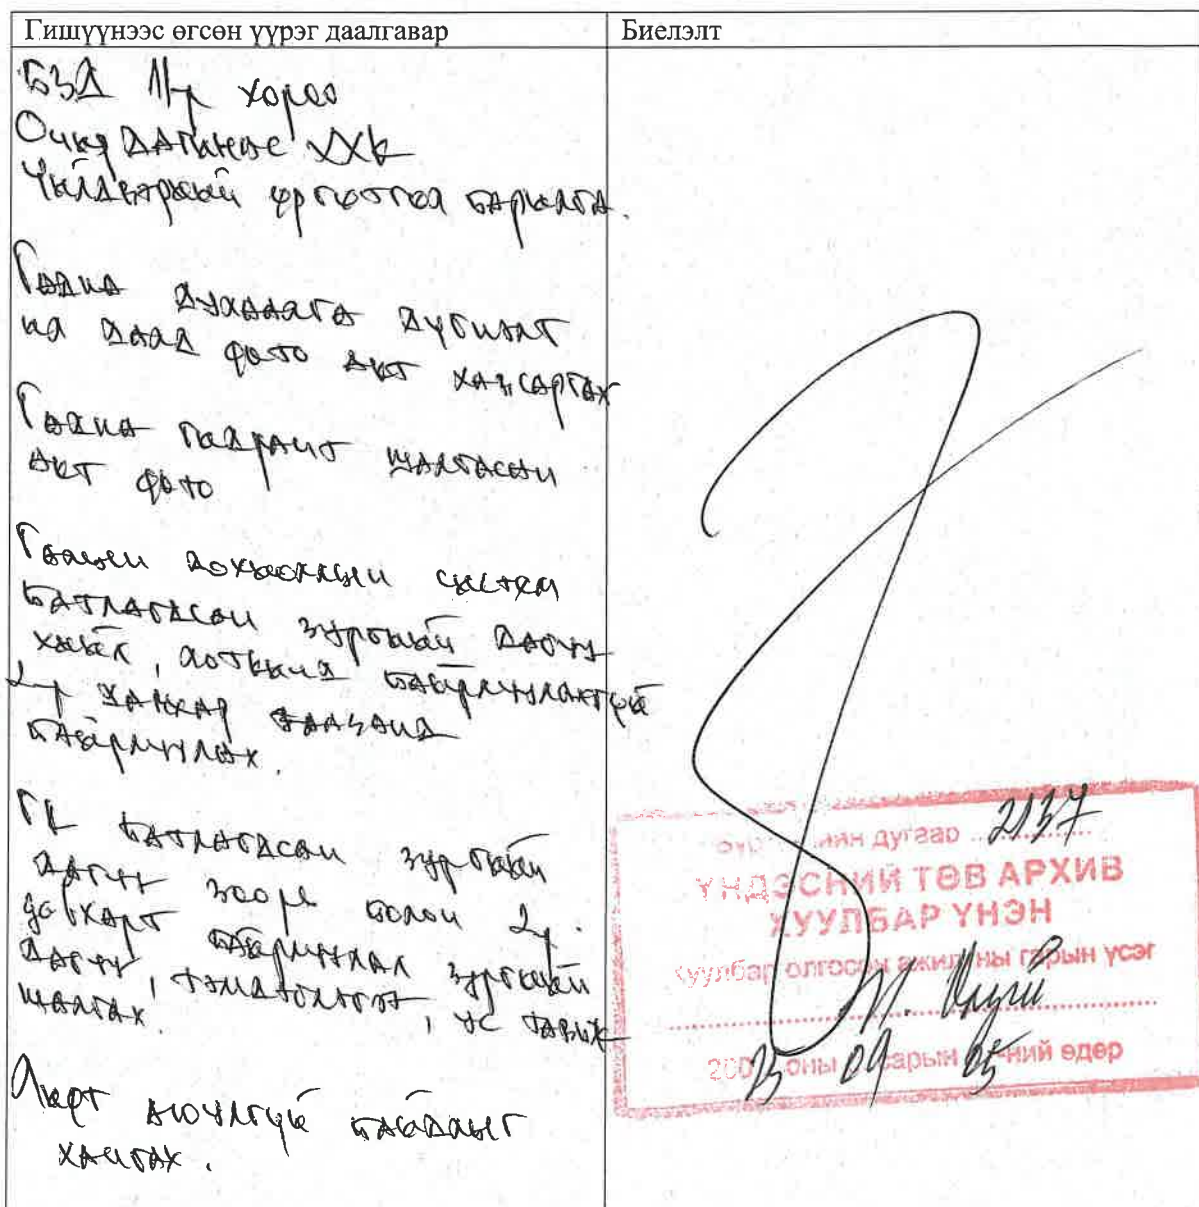 Гишүүнээс өгсөн үүрэг даалгавар
Биелэлт
БЗД 11-р хороо
Очир ХХК
Үйлдвэрийн өргөтгөл барилга.
Гадна дулаалга дүгнэлт
фото акт хавсаргах
Гадна гидрант шалгасан
акт фото
Галын дохиоллын систем
батлагдсан зургийн дагуу
хийх, байрлуулахгүй
2-р давхар
байрлуулах.
батлагдсан зургийн
дагуу зоорь болон 2-р
давхарт байрлуулах зургийн
дагуу, тэмдэглэгээ, ус тавьж
шалгах.
Лифт аюулгүй байдлыг
хангах.
дугаар 2137
ҮНДЭСНИЙ ТӨВ АРХИВ
ХУУЛБАР ҮНЭН
Хуулбар олгосон ажилтны гарын үсэг
200 23 оны 09 сарын 05-ний өдөр